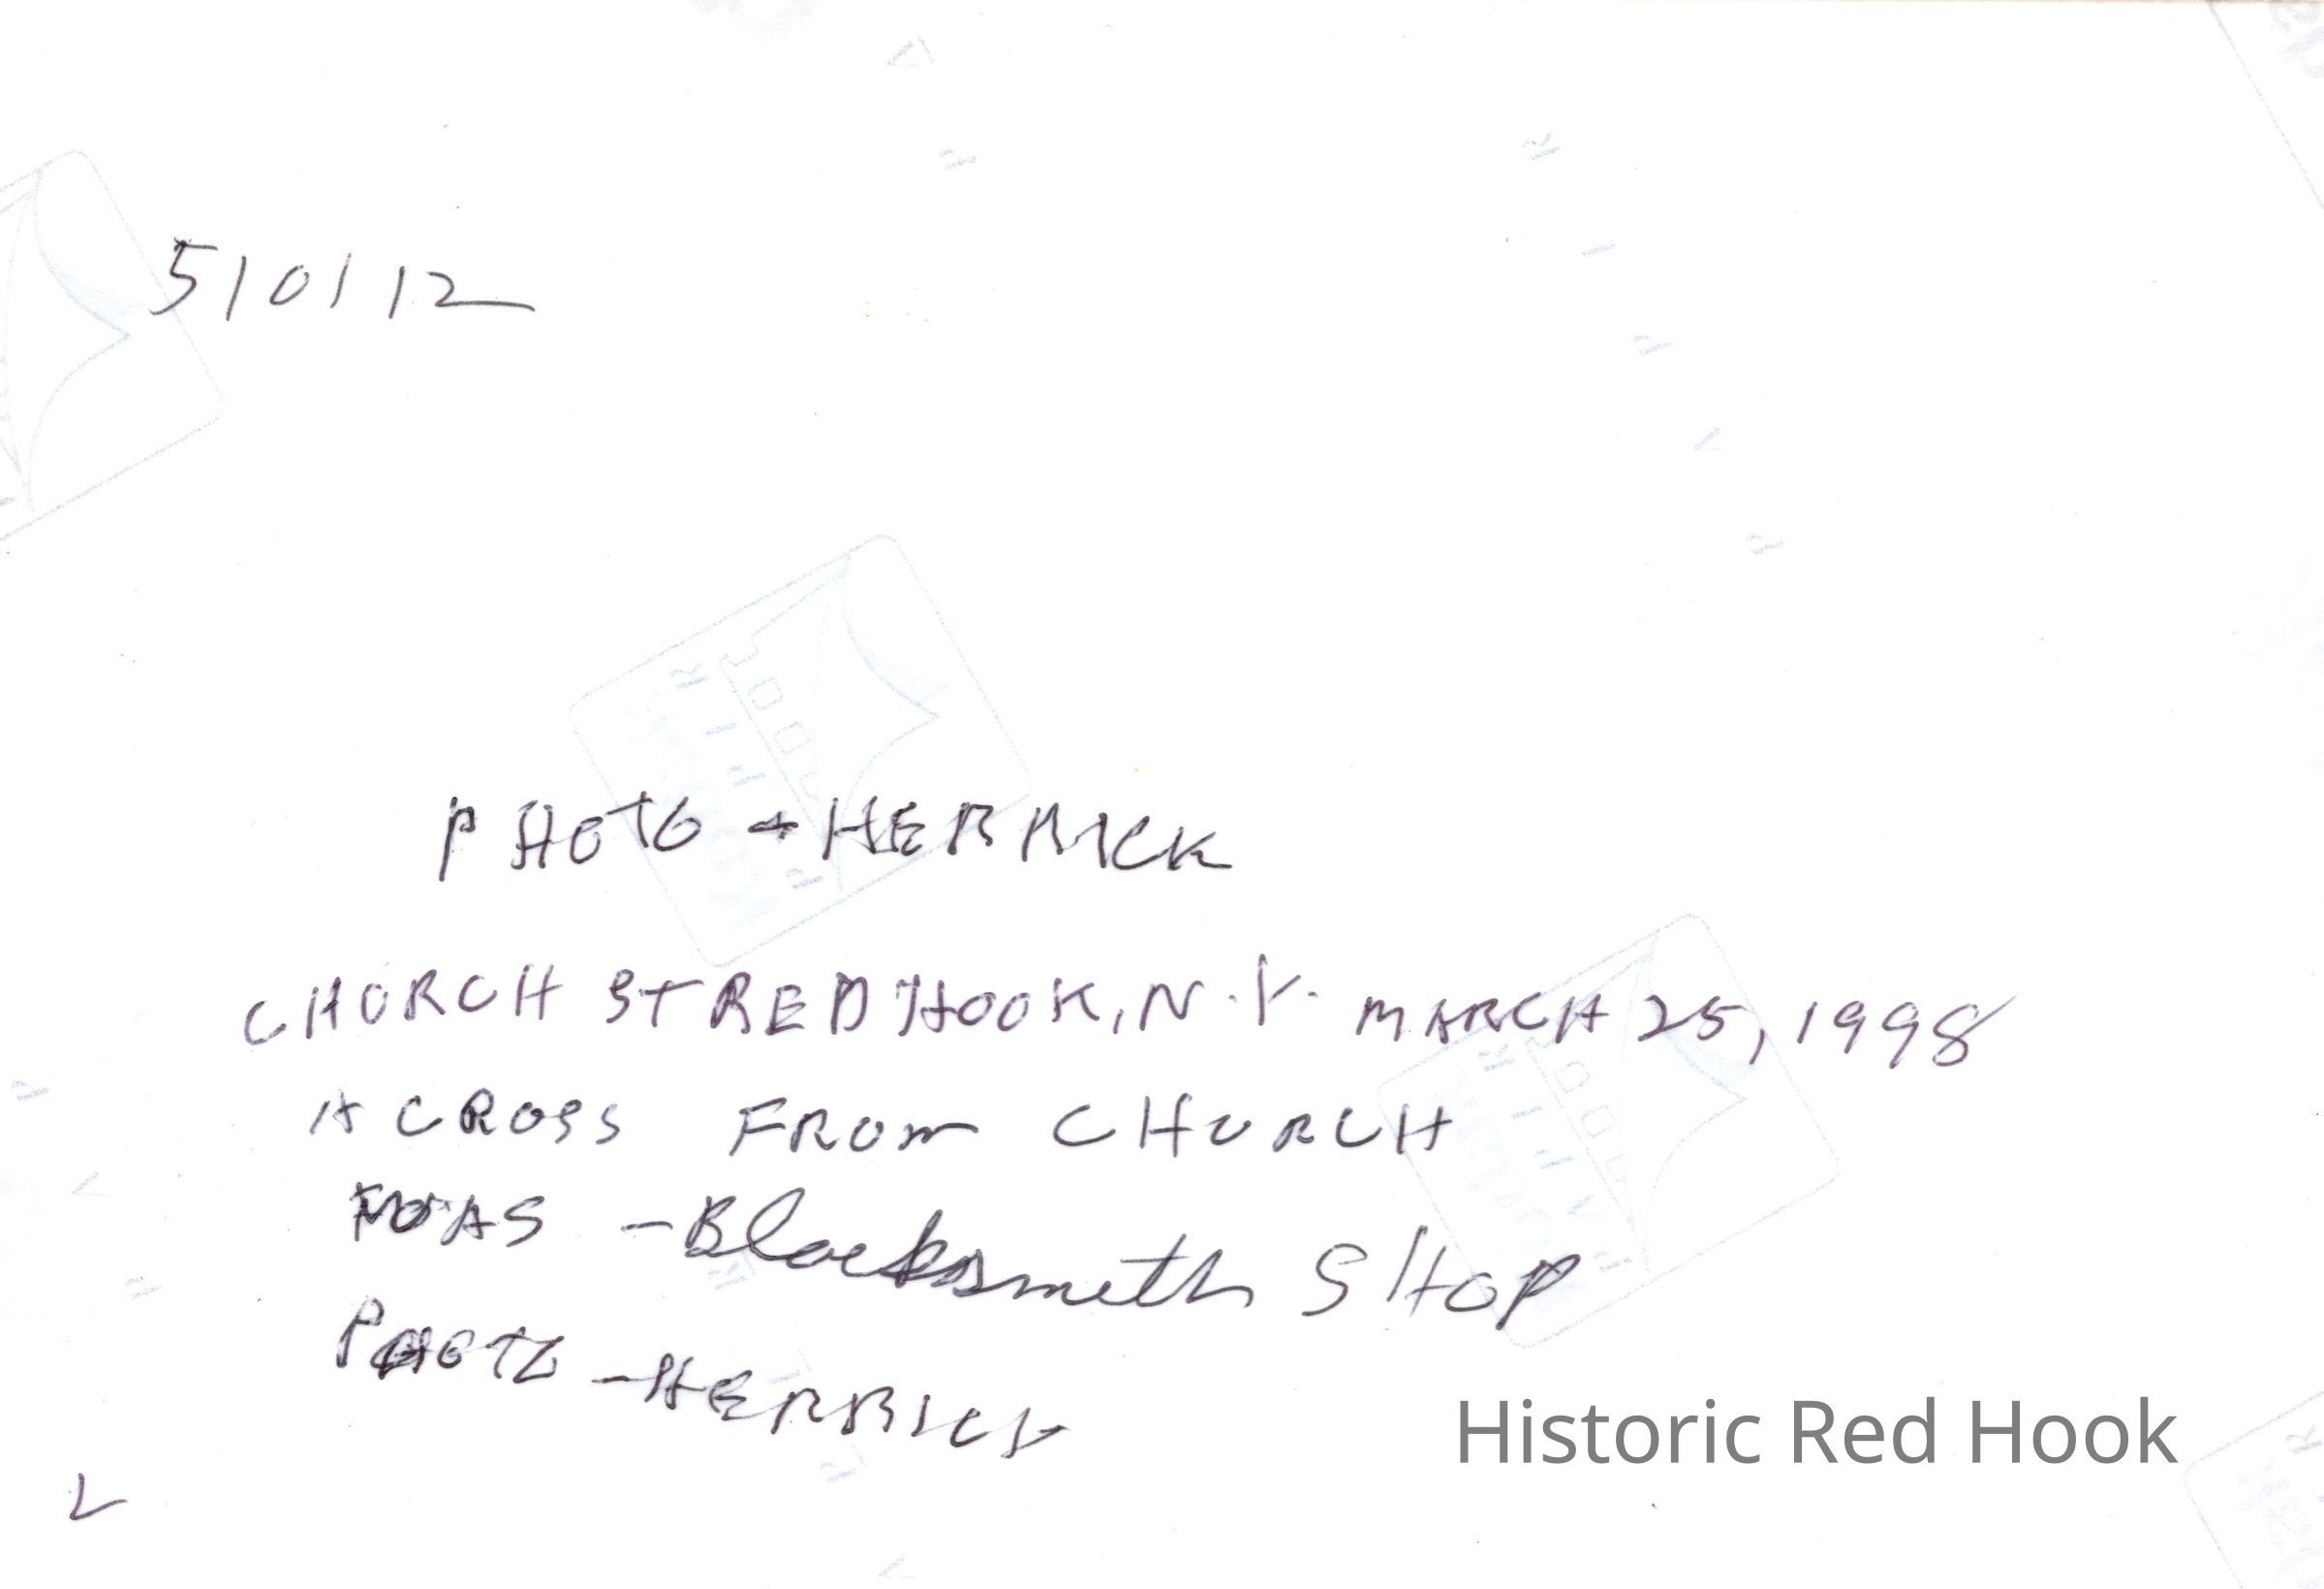 510112
PHOTO - HERRICK
CHURCH ST RED HOOK, N.Y. MARCH 25, 1998
ACROSS FROM CHURCH
WAS - Blacksmith SHOP
PHOTO - HERRICK
Historic Red Hook